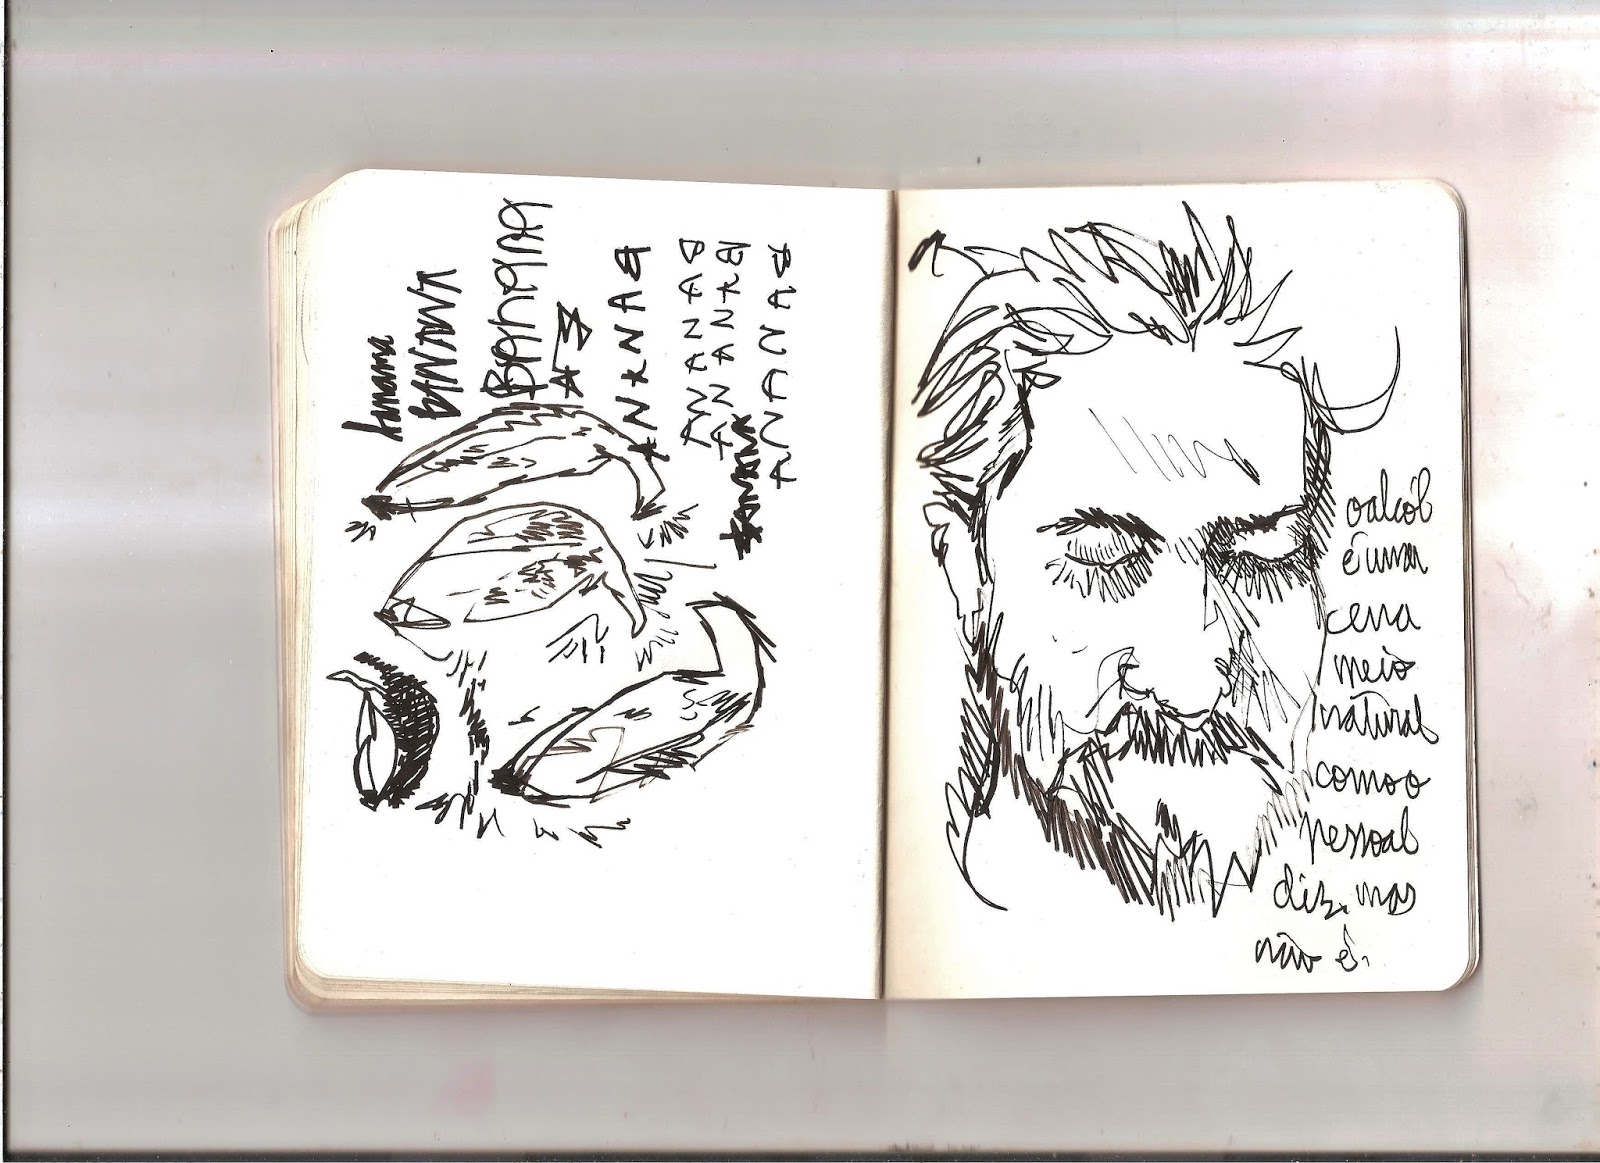 banana
BANANA
Banana
ANANAB
ANANAB
ANANAB
BANANA
ANANAB
o alcól
é uma
cena
meio
natural
como o
pessoal
diz, mas
não é.